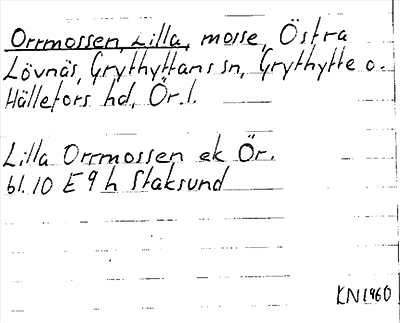 Orrmossen, Lilla, mosse, Östra
Lövnäs, Grythyttans sn, Grythytte o.
Hällefors hd, Ör. l.
Lilla Orrmossen ek Ör.
bl. 10 E 9 h Staksund
KN1960